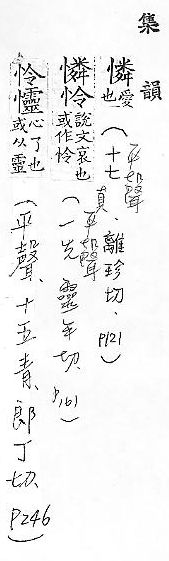 集韻
憐愛也(平聲十七真、離珍切、P121)
憐怜說文哀也或作怜(平聲一先 靈年切、P,161)
怜㦭心了也或从靈(平聲、十五青、郎丁切、P246)